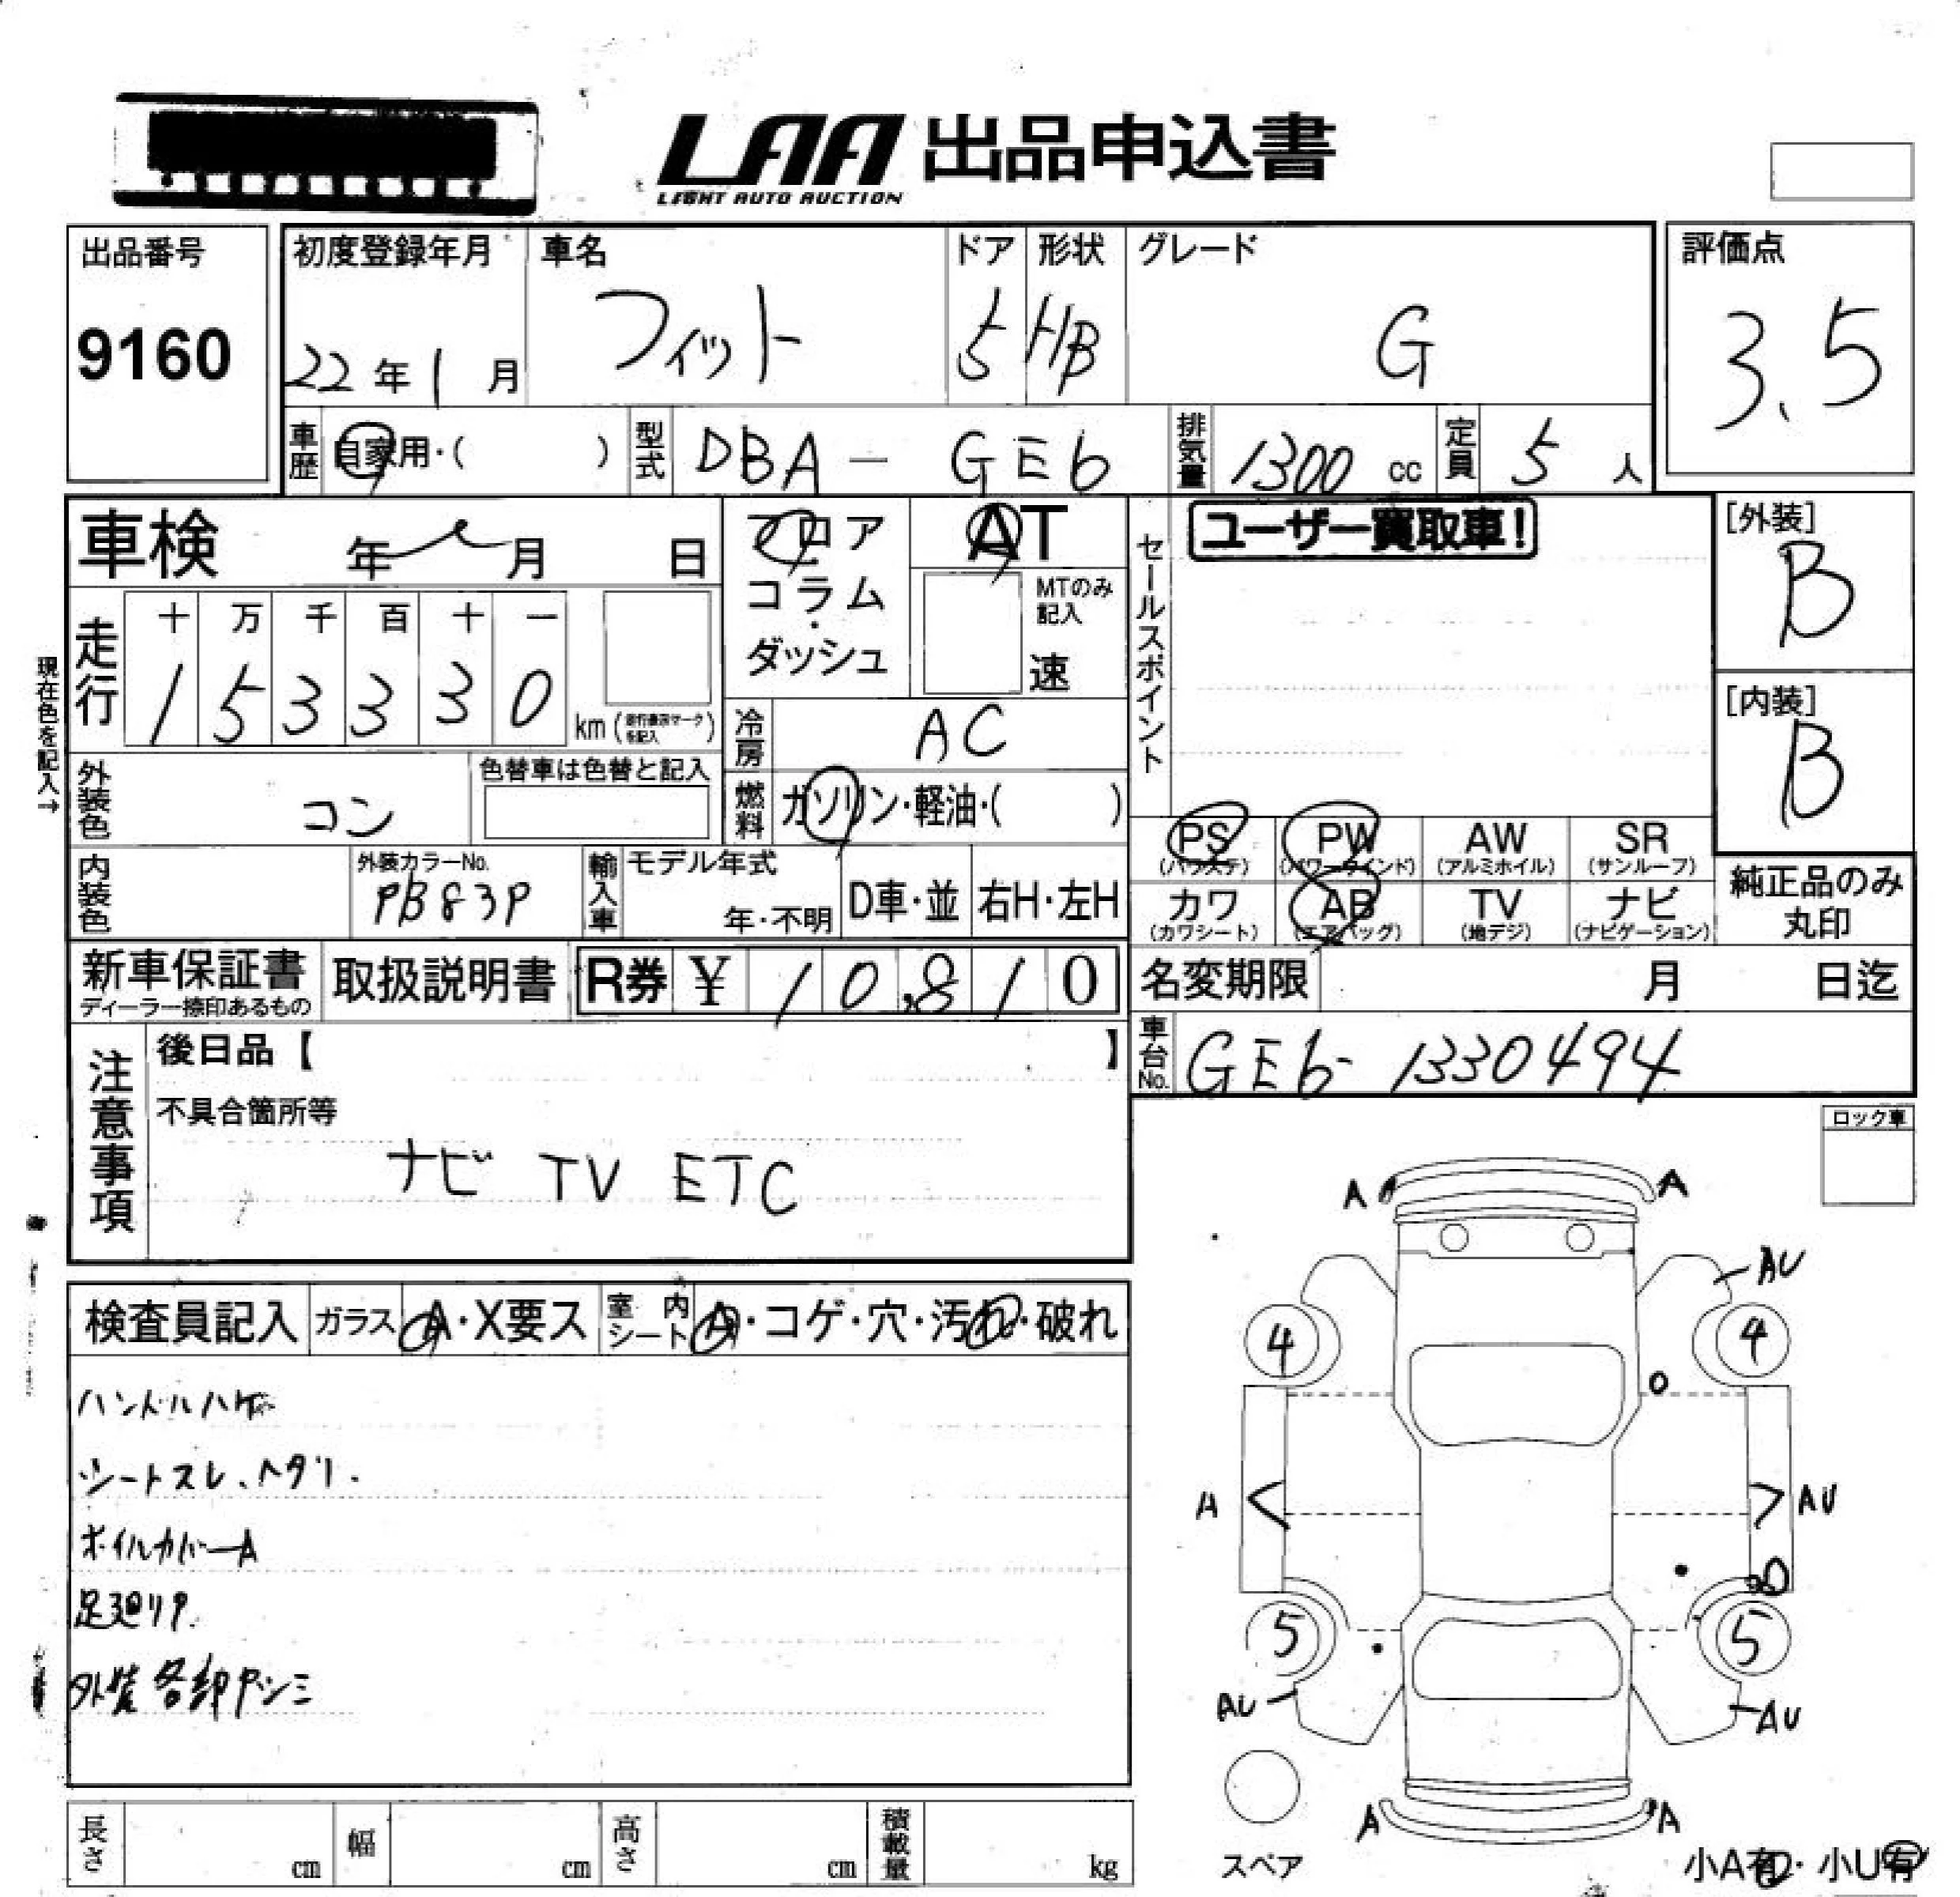 LAA 出品申込書
LIGHT AUTO AUCTION
出品番号
9160
初度登録年月
22年1月
車名
フィット
ドア
5
形状
HB
グレード
G
評価点
3.5
車歴
自家用・( )
型式
DBA-GE6
排気量
1300 cc
定員
5 人
車検 年 月 日
フロア
コラム
・
ダッシュ
AT
MTのみ
記入
速
セールスポイント
ユーザー買取車!
[外装]
B
[内装]
B
現在色を記入→
走行
十 万 千 百 十 一
1 5 3 3 3 0
km (走行表示マークを記入)
冷房
AC
外装色
コン
色替車は色替と記入
燃料
ガソリン・軽油・( )
PS
(パワステ)
PW
(パワーウインド)
AW
(アルミホイル)
SR
(サンルーフ)
内装色
外装カラーNo.
PB83P
輸入車
モデル年式
年・不明
D車・並
右H・左H
カワ
(カワシート)
AB
(エアバッグ)
TV
(地デジ)
ナビ
(ナビゲーション)
純正品のみ
丸印
新車保証書
ディーラー捺印あるもの
取扱説明書
R券 ¥ 10,810
名変期限 月 日迄
車台No.
GE6-1330494
注意事項
後日品【 】
不具合箇所等
ナビ TV ETC
ロック車
検査員記入
ガラス
A・X要ス
室内
シート
A・コゲ・穴・汚れ・破れ
ハンドルハゲ
シートスレ、ヘタリ.
ホイルカバーA
足廻りサ.
外装各部
A A
AU
4 4
A AU
5 5
AU AU
A A
スペア
小A有・小U有
長さ cm
幅 cm
高さ cm
積載量 kg